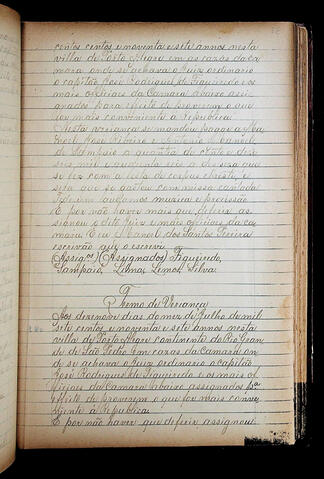 centos centos e noventa e sete annos nesta
villa de Porto Alegre em as cazas da ca-
mara onde se achava o Juiz ordinario
o capitão José Rodrigues de Figueiredo e os
mais officiaes da Camara abaixo assi-
gnados para effeito de proverem o que
for mais conveniente a Republica
Nesta vereança se mandou pagar a
José Ribeiro e Antonio Manoel
de Sampaio a quantia de
mil e quarenta reis da despeza que
se fez com a festa de corpus christe, e
esta que se gastou com missa cantada
muzica e procissão
E por não haver mais que deferir as-
signou o dito Juiz e mais officiaes da ca-
mara. Eu Manoel dos Santos Pereira
escrivão que o escrevi
(Assigos) (Assignados) Figueiredo,
Sampaio, Lima, Lemos, Silva.
Termo de Vereança
Aos dezenove dias do mez de Julho de mil
sete centos e noventa e sete annos nesta
villa de Porto Alegre continente do Rio Gran-
de de São Pedro em cazas da Camara on-
de se achava o Juiz ordinario o capitão
José Rodrigues de Figueiredo e os mais of-
ficiaes da Camara abaixo assignados pa
effeito de proverem o que for mais conve-
niente a Republica.
E por não haver que deferir assignou